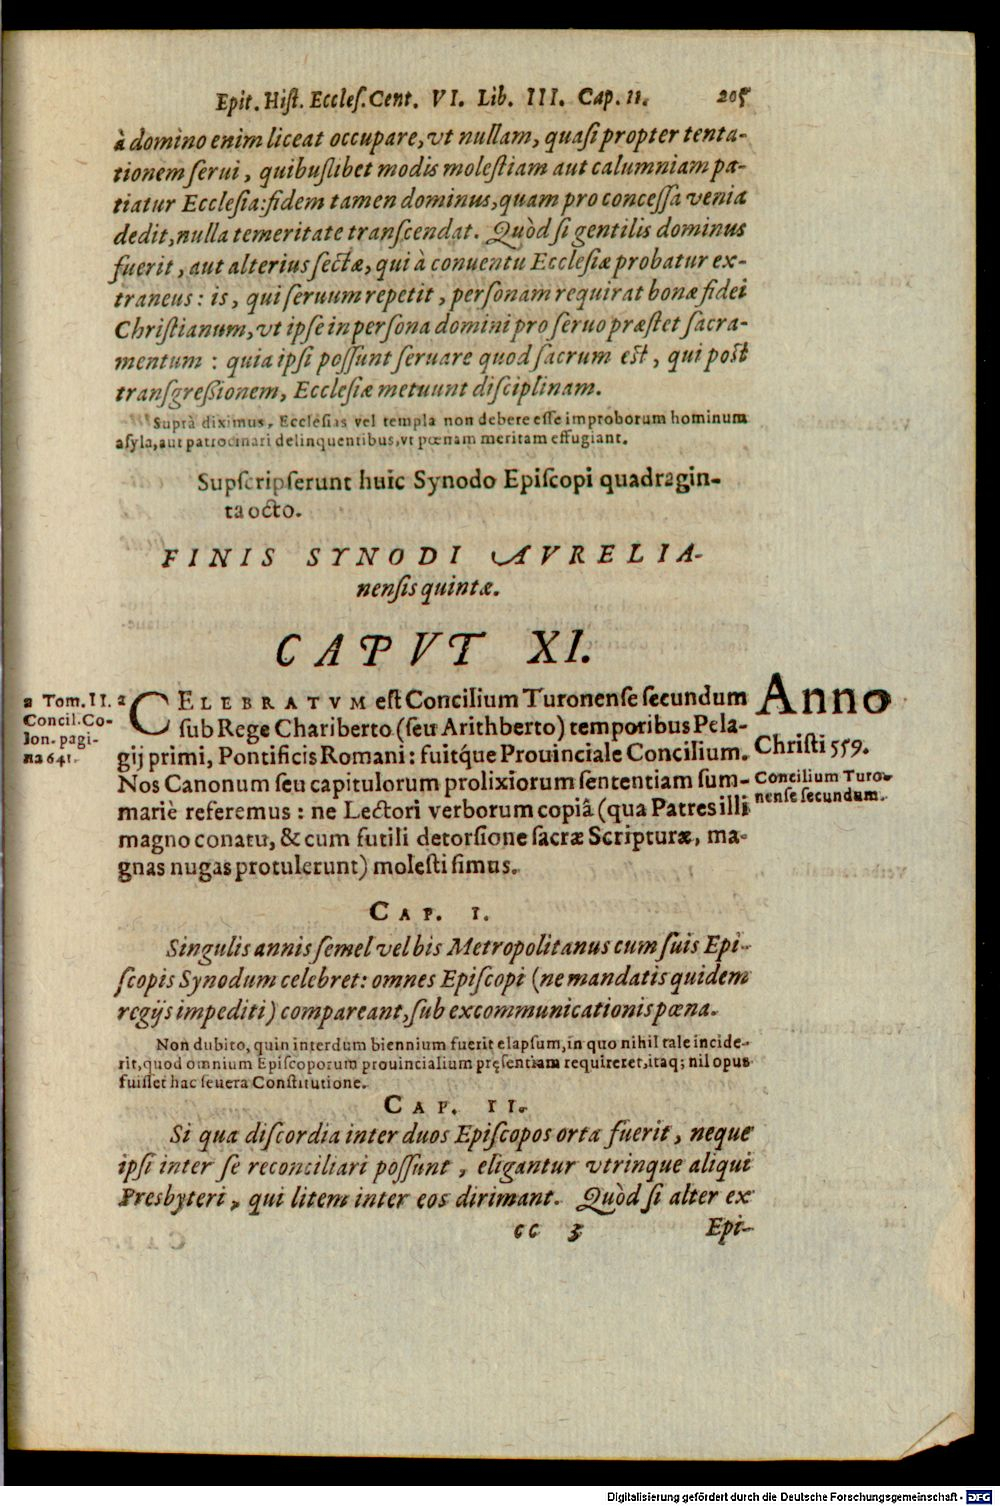 Epit. Hiſt. Eccleſ. Cent. VI. Lib. III. Cap. 11. 205
à domino enim liceat occupare, vt nullam, quaſi propter tenta-
tionem ſerui, quibuſlibet modis moleſtiam aut calumniam pa-
tiatur Eccleſia: fidem tamen dominus, quam pro conceſſa venia
dedit, nulla temeritate tranſcendat. Quòd ſi gentilis dominus
fuerit, aut alterius ſectæ, qui à conuentu Eccleſiæ probatur ex-
traneus: is, qui ſeruum repetit, perſonam requirat bonæ fidei
Chriſtianum, vt ipſe in perſona domini pro ſeruo præſtet ſacra-
mentum: quia ipſi poſſunt ſeruare quod ſacrum eſt, qui poſt
tranſgreßionem, Eccleſiæ metuunt diſciplinam.
Suprà diximus, Eccleſias vel templa non debere eſſe improborum hominum
aſyla, aut patrocinari delinquentibus, vt pœnam meritam effugiant.
Supſcripſerunt huic Synodo Epiſcopi quadragin-
ta octo.
FINIS SYNODI AVRELIA-
nenſis quintæ.
CAPVT XI.
a Tom. II.
Concil. Co-
lon. pagi-
na 641.
a CELEBRATVM eſt Concilium Turonenſe ſecundum
ſub Rege Chariberto (ſeu Arithberto) temporibus Pela-
gij primi, Pontificis Romani: fuitq́ue Prouinciale Concilium.
Nos Canonum ſeu capitulorum prolixiorum ſententiam ſum-
mariè referemus: ne Lectori verborum copiâ (qua Patres illi
magno conatu, & cum futili detorſione ſacræ Scripturæ, ma-
gnas nugas protulerunt) moleſti ſimus.
Anno
Chriſti 559.
Concilium Turo-
nenſe ſecundum.
CAP. I.
Singulis annis ſemel vel bis Metropolitanus cum ſuis Epi-
ſcopis Synodum celebret: omnes Epiſcopi (ne mandatis quidem
regijs impediti) compareant, ſub excommunicationis pœna.
Non dubito, quin interdum biennium fuerit elapſum, in quo nihil tale incide-
rit, quod omnium Epiſcoporum prouincialium pręſentiam requireret, itaq; nil opus
fuiſſet hac ſeuera Conſtitutione.
CAP. II.
Si qua diſcordia inter duos Epiſcopos orta fuerit, neque
ipſi inter ſe reconciliari poſſunt, eligantur vtrinque aliqui
Presbyteri, qui litem inter eos dirimant. Quòd ſi alter ex
cc 3 Epi-
Digitalisierung gefördert durch die Deutsche Forschungsgemeinschaft - DFG